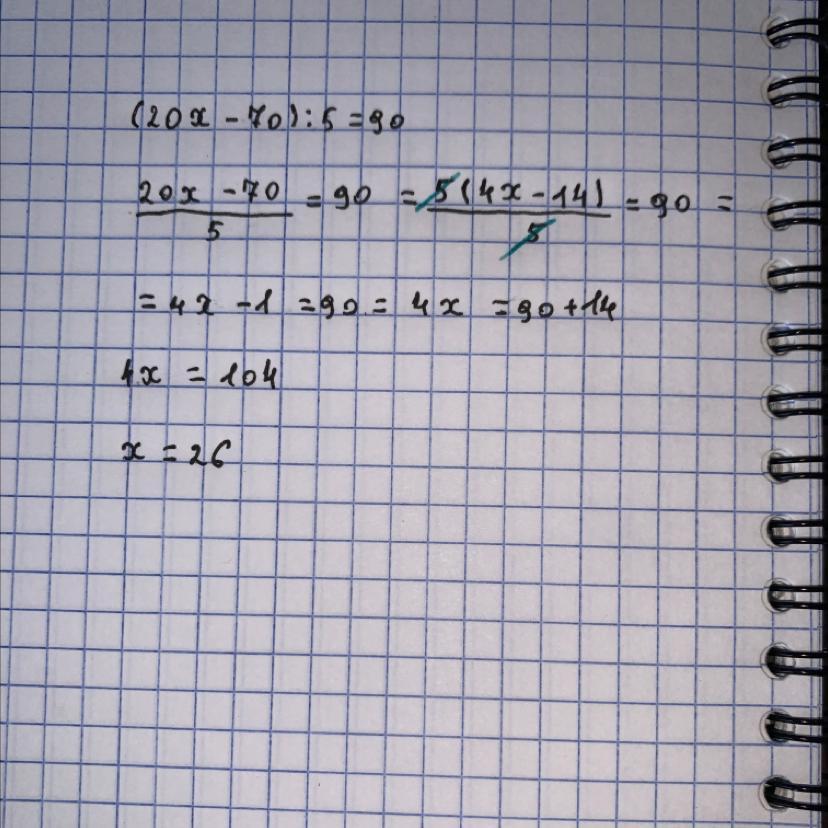 (20x - 70) : 5 = 90
20x - 70 / 5 = 90 = 5(4x - 14) / 5 = 90 =
= 4x - 1 = 90 = 4x = 90 + 14
4x = 104
x = 26